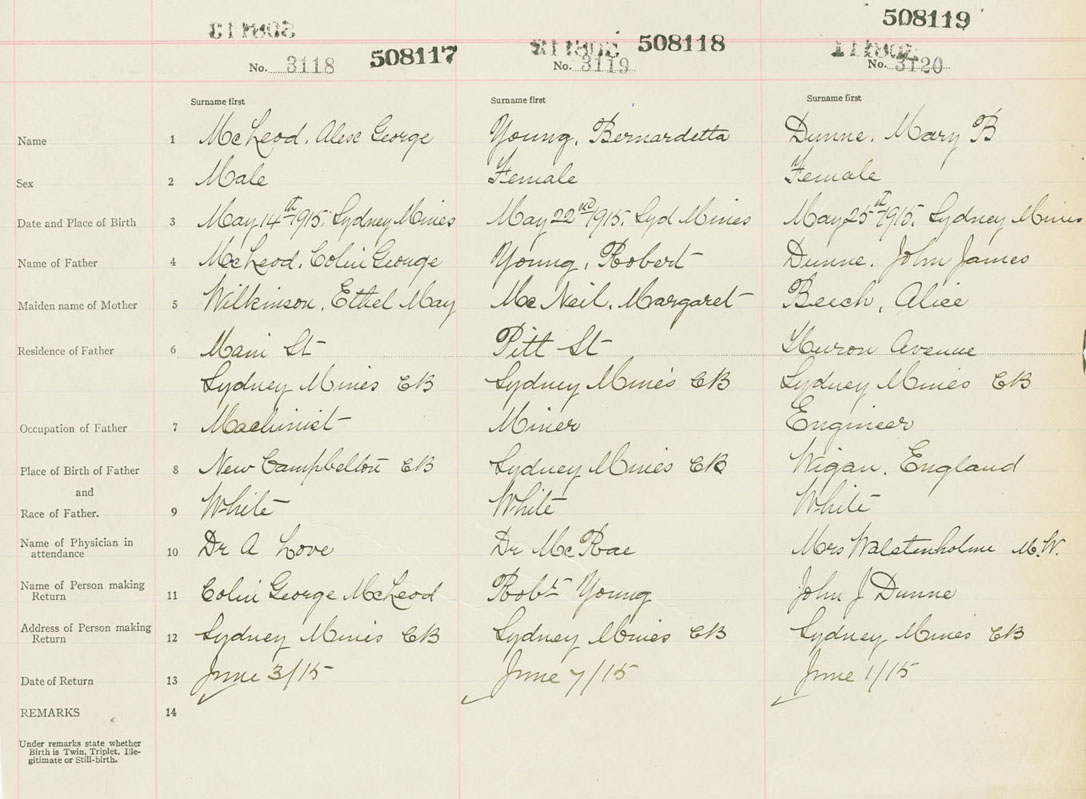 508119
508117 508118
No. 3118 No. 3119 No. 3120
Surname first Surname first Surname first
Name 1 McLeod, Alex George Young, Bernardetta Dunne, Mary B
Sex 2 Male Female Female
Date and Place of Birth 3 May 14th 1915. Sydney Mines May 22nd 1915. Syd Mines May 25th 1915. Sydney Mines
Name of Father 4 McLeod, Colin George Young, Robert Dunne, John James
Maiden name of Mother 5 Wilkinson, Ethel May McNeil, Margaret Beech, Alice
Residence of Father 6 Main St Pitt St Huron Avenue
Sydney Mines CB Sydney Mines CB Sydney Mines CB
Occupation of Father 7 Machinist Miner Engineer
Place of Birth of Father 8 New Campbelton CB Sydney Mines CB Wigan, England
and
Race of Father. 9 White White White
Name of Physician in
attendance 10 Dr A Love Dr McRae Mrs Walstenholme M.W.
Name of Person making
Return 11 Colin George McLeod Robt Young John J Dunne
Address of Person making
Return 12 Sydney Mines CB Sydney Mines CB Sydney Mines CB
Date of Return 13 June 3/15 June 7/15 June 1/15
REMARKS 14
Under remarks state whether
Birth is Twin, Triplet, Ille-
gitimate or Still-birth.